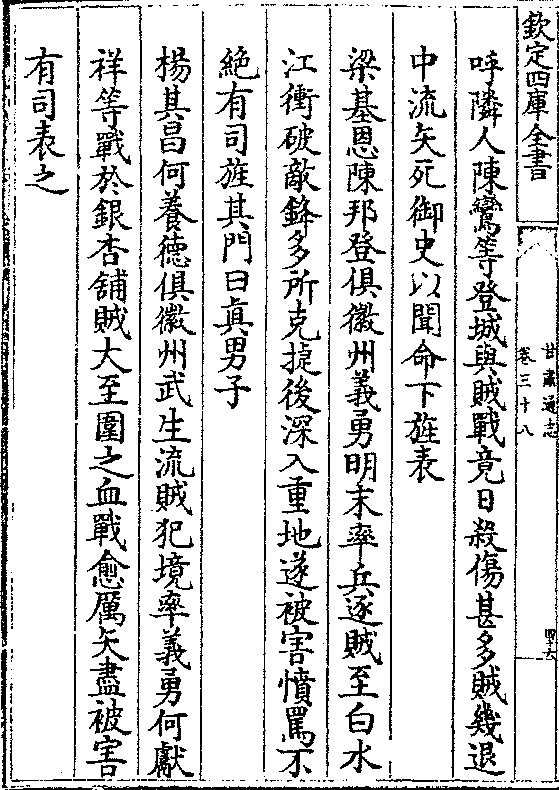 欽定四庫全書
甘肅通志
卷三十八
四十六
呼隣人陳鸞等登城與賊戰竟日殺傷甚多賊幾退
中流矢死御史以聞命下旌表
梁基恩陳邦登俱徽州義勇明末率兵逐賊至白水
江衝破敵鋒多所克捷後深入重地遂被害憤罵不
絶有司旌其門曰真男子
楊其昌何養德俱徽州武生流賊犯境率義勇何獻
祥等戰於銀杏舖賊大至圍之血戰愈厲矢盡被害
有司表之